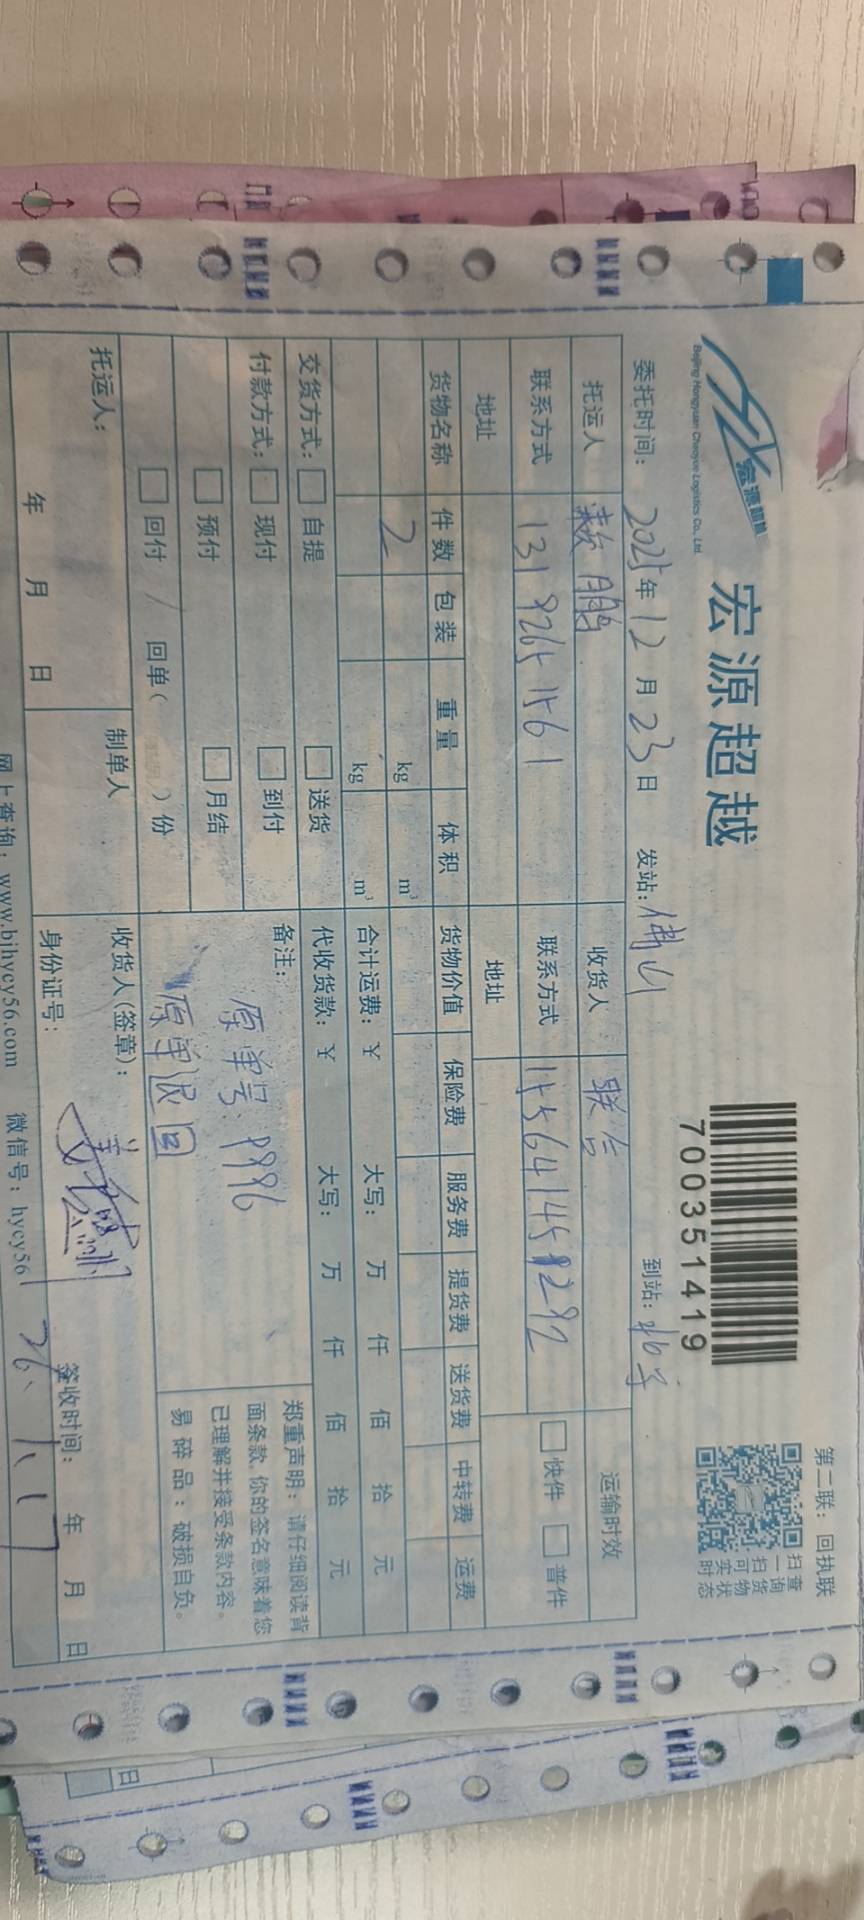 第二联：回执联
宏源超越
宏源超越
Beijing Hongyuan Chaoyue Logistics Co., Ltd
700351419
扫一扫可实时
查询货物状态
委托时间：2025年12月23日 发站：佛山 到站：
托运人 鹏 收货人 联合 运输时效
联系方式 131 9265 1561 联系方式 快件 普件
地址 地址
货物名称 件数 包装 重量 体积 货物价值 保险费 服务费 提货费 送货费 中转费 运费
2 kg m³
kg m³ 合计运费：¥ 大写： 万 仟 佰 拾 元
交货方式： 自提 送货 代收货款：¥ 大写： 万 仟 佰 拾 元
付款方式： 现付 到付 备注：
预付 月结 原单号：9996
回付 / 回单（ ）份 原单返回
郑重声明：请仔细阅读背
面条款，你的签名意味着您
已理解并接受条款内容。
易碎品：破损自负。
托运人： 制单人 收货人(签章)：
年 月 日 身份证号： 签收时间： 年 月 日
网上查询：www.bjhycy56.com 微信号：hycy56